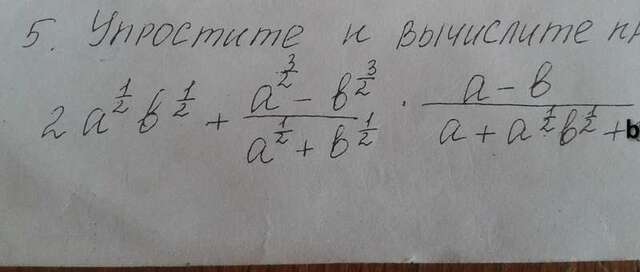 5. Упростите и вычислите
2 a^{\frac{1}{2}} b^{\frac{1}{2}} + \frac{a^{\frac{3}{2}} - b^{\frac{3}{2}}}{a^{\frac{1}{2}} + b^{\frac{1}{2}}} \cdot \frac{a - b}{a + a^{\frac{1}{2}} b^{\frac{1}{2}} + b}